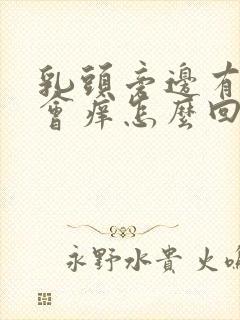 乳頭旁邊有
會痒怎麼回
永野水貴 火鳴